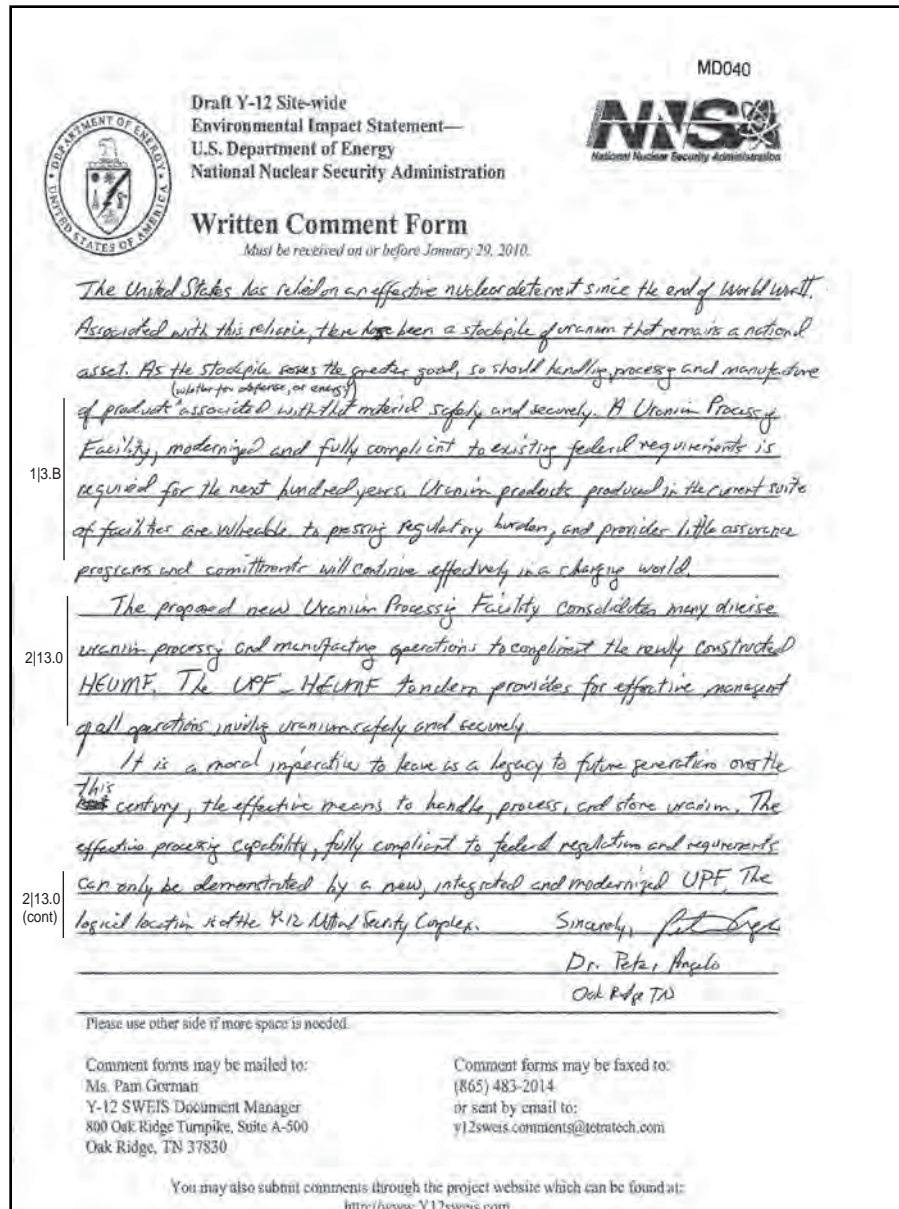 MD040
Draft Y-12 Site-wide
Environmental Impact Statement—
U.S. Department of Energy
National Nuclear Security Administration
DEPARTMENT OF ENERGY
UNITED STATES OF AMERICA
NNSA
National Nuclear Security Administration
Written Comment Form
Must be received on or before January 29, 2010.
The United States has relied on an effective nuclear deterrent since the end of World War II.
Associated with this reliance, there has been a stockpile of uranium that remains a national
asset. As the stockpile serves the greater good, so should handling, process and manufacture
(whether for defense, or energy)
of products associated with that material safely and securely. A Uranium Processing
1|3.B
Facility, modernized and fully complient to existing federal requirements is
required for the next hundred years. Uranium products produced in the current suite
of facilities are vulnerable to pressing regulatory burden, and provides little assurance
programs and comittments will continue effectively in a changing world.
The proposed new Uranium Processing Facility consolidates many diverse
2|13.0
uranium processing and manufacting operations to compliment the newly constructed
HEUMF. The UPF-HEUMF tandem provides for effective managent
of all operations involving uranium safely and securely.
It is a moral imperative to leave as a legacy to future generations over the
this
century, the effective means to handle, process, and store uranium. The
effective processing capability, fully compliant to federal regulations and requirements
2|13.0
(cont)
can only be demonstrated by a new, integrated and modernized UPF. The
logical location is at the Y-12 National Security Complex. Sincerely,
Dr. Peter Angelo
Oak Ridge TN
Please use other side if more space is needed.
Comment forms may be mailed to:
Ms. Pam Gorman
Y-12 SWEIS Document Manager
800 Oak Ridge Turnpike, Suite A-500
Oak Ridge, TN 37830
Comment forms may be faxed to:
(865) 483-2014
or sent by email to:
y12sweis.comments@tetratech.com
You may also submit comments through the project website which can be found at:
http://www.Y12sweis.com